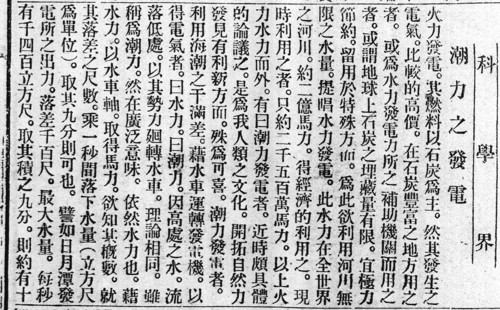 科學界
潮力之發電
火力發電。其燃料以石炭爲主。然其發生之
電氣。比較的高價。在石炭豐富之地方用之
者。或爲水力發電力所之補助機關而用之
者。或謂地球上石炭之埋藏量有限。宜極力
節約。留用於特殊方面。爲此欲利用河川無
限之水量。提唱水力發電。此水力在全世界
之河川。約二億馬力。得經濟的利用之。現
時利用之者。只約二千五百萬馬力。以上火
力水力而外。有曰潮力發電者。近時頗具體
的論議之。是爲我人類之文化。開拓自然力
發見有利新方面。殊爲可喜。潮力發電者。
利用海潮之干滿差。藉水車運轉發電機。以
得電氣者。曰水力。曰潮力。因高處之水。流
落低處。以其勢力廻轉水車。理論相同。雖
稱爲潮力。然在廣泛意味。依然水力也。藉
水力。以水車軸。取得馬力。欲知其概數。就
其落差之尺數。乘一秒間落下水量（立方尺
爲單位）。取其九分則可也。譬如日月潭發
電所之出力。落差千百尺。最大水量。每秒
有千四百立方尺。取其積之九分。則約有十